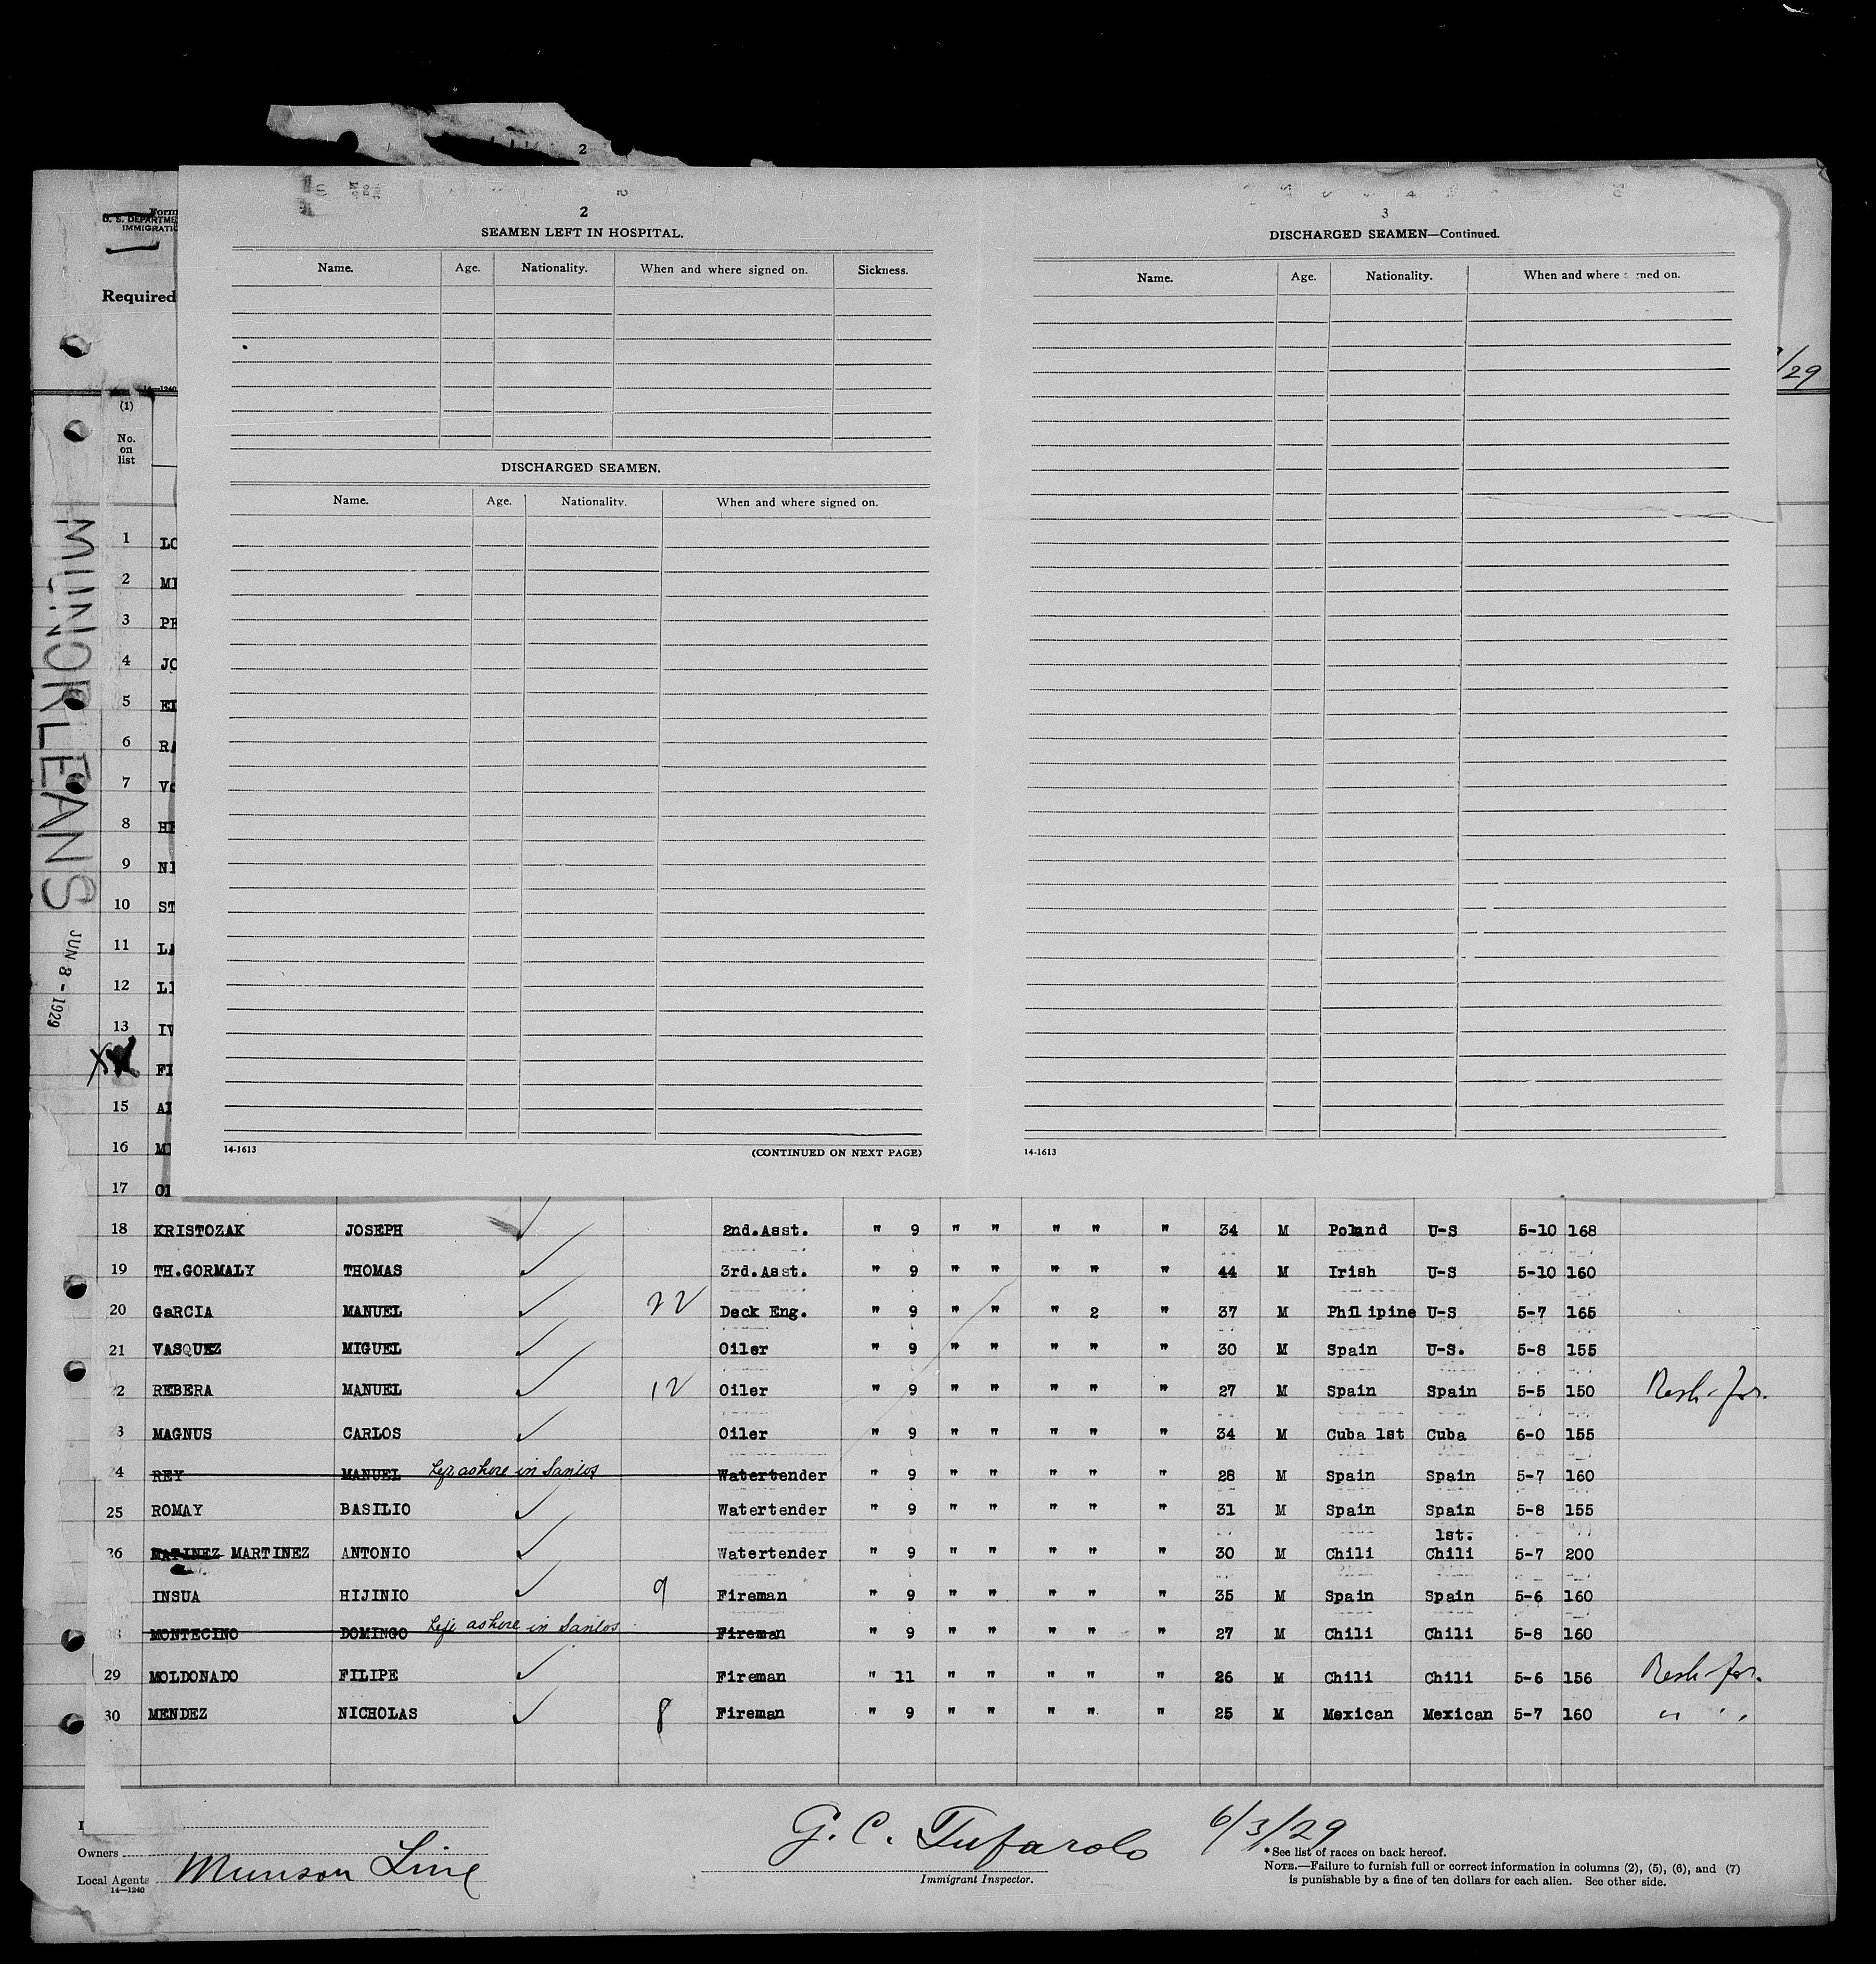 2
Form
U. S. DEPARTME
IMMIGRATIO
Required
14—1240
/29
(1)
No.
on
list
MUNORLEANS
JUN 8 - 1929
2
SEAMEN LEFT IN HOSPITAL.
Name. Age. Nationality. When and where signed on. Sickness.
DISCHARGED SEAMEN.
Name. Age. Nationality. When and where signed on.
14-1613 (CONTINUED ON NEXT PAGE)
3
DISCHARGED SEAMEN—Continued.
Name. Age. Nationality. When and where signed on.
14-1613
1 LO
2 MI
3 PE
4 JO
5 EI
6 RA
7 Vo
8 HE
9 NI
10 ST
11 LA
12 LI
13 IV
FI
15 AI
16 M
17 Ol
18 KRISTOZAK JOSEPH 2nd.Asst. " 9 " " " " " 34 M Poland U-S 5-10 168
19 TH.GORMALY THOMAS 3rd.Asst. " 9 " " " " " 44 M Irish U-S 5-10 160
20 GaRCIA MANUEL 22 Deck Eng. " 9 " " " 2 " 37 M Philipine U-S 5-7 165
21 VASQUEZ MIGUEL Oiler " 9 " " " " " 30 M Spain U-S. 5-8 155
22 REBERA MANUEL 12 Oiler " 9 " " " " " 27 M Spain Spain 5-5 150 Resh-for.
3 MAGNUS CARLOS Oiler " 9 " " " " " 34 M Cuba 1st Cuba 6-0 155
4 REY MANUEL Left ashore in Santos Watertender " 9 " " " " " 28 M Spain Spain 5-7 160
25 ROMAY BASILIO Watertender " 9 " " " " " 31 M Spain Spain 5-8 155
1st.
26 MATINEZ MARTINEZ ANTONIO Watertender " 9 " " " " " 30 M Chili Chili 5-7 200
INSUA HIJINIO 9 Fireman " 9 " " " " " 35 M Spain Spain 5-6 160
28 MONTECINO DOMINGO Left ashore in Santos Fireman " 9 " " " " " 27 M Chili Chili 5-8 160
29 MOLDONADO FILIPE Fireman " 11 " " " " " 26 M Chili Chili 5-6 156 Resh-for.
30 MENDEZ NICHOLAS 8 Fireman " 9 " " " " " 25 M Mexican Mexican 5-7 160 " "
Owners
Local Agents Munson Line
14—1240
G. C. Tufarolo 6/3/29
Immigrant Inspector.
* See list of races on back hereof.
NOTE.—Failure to furnish full or correct information in columns (2), (5), (6), and (7)
is punishable by a fine of ten dollars for each alien. See other side.